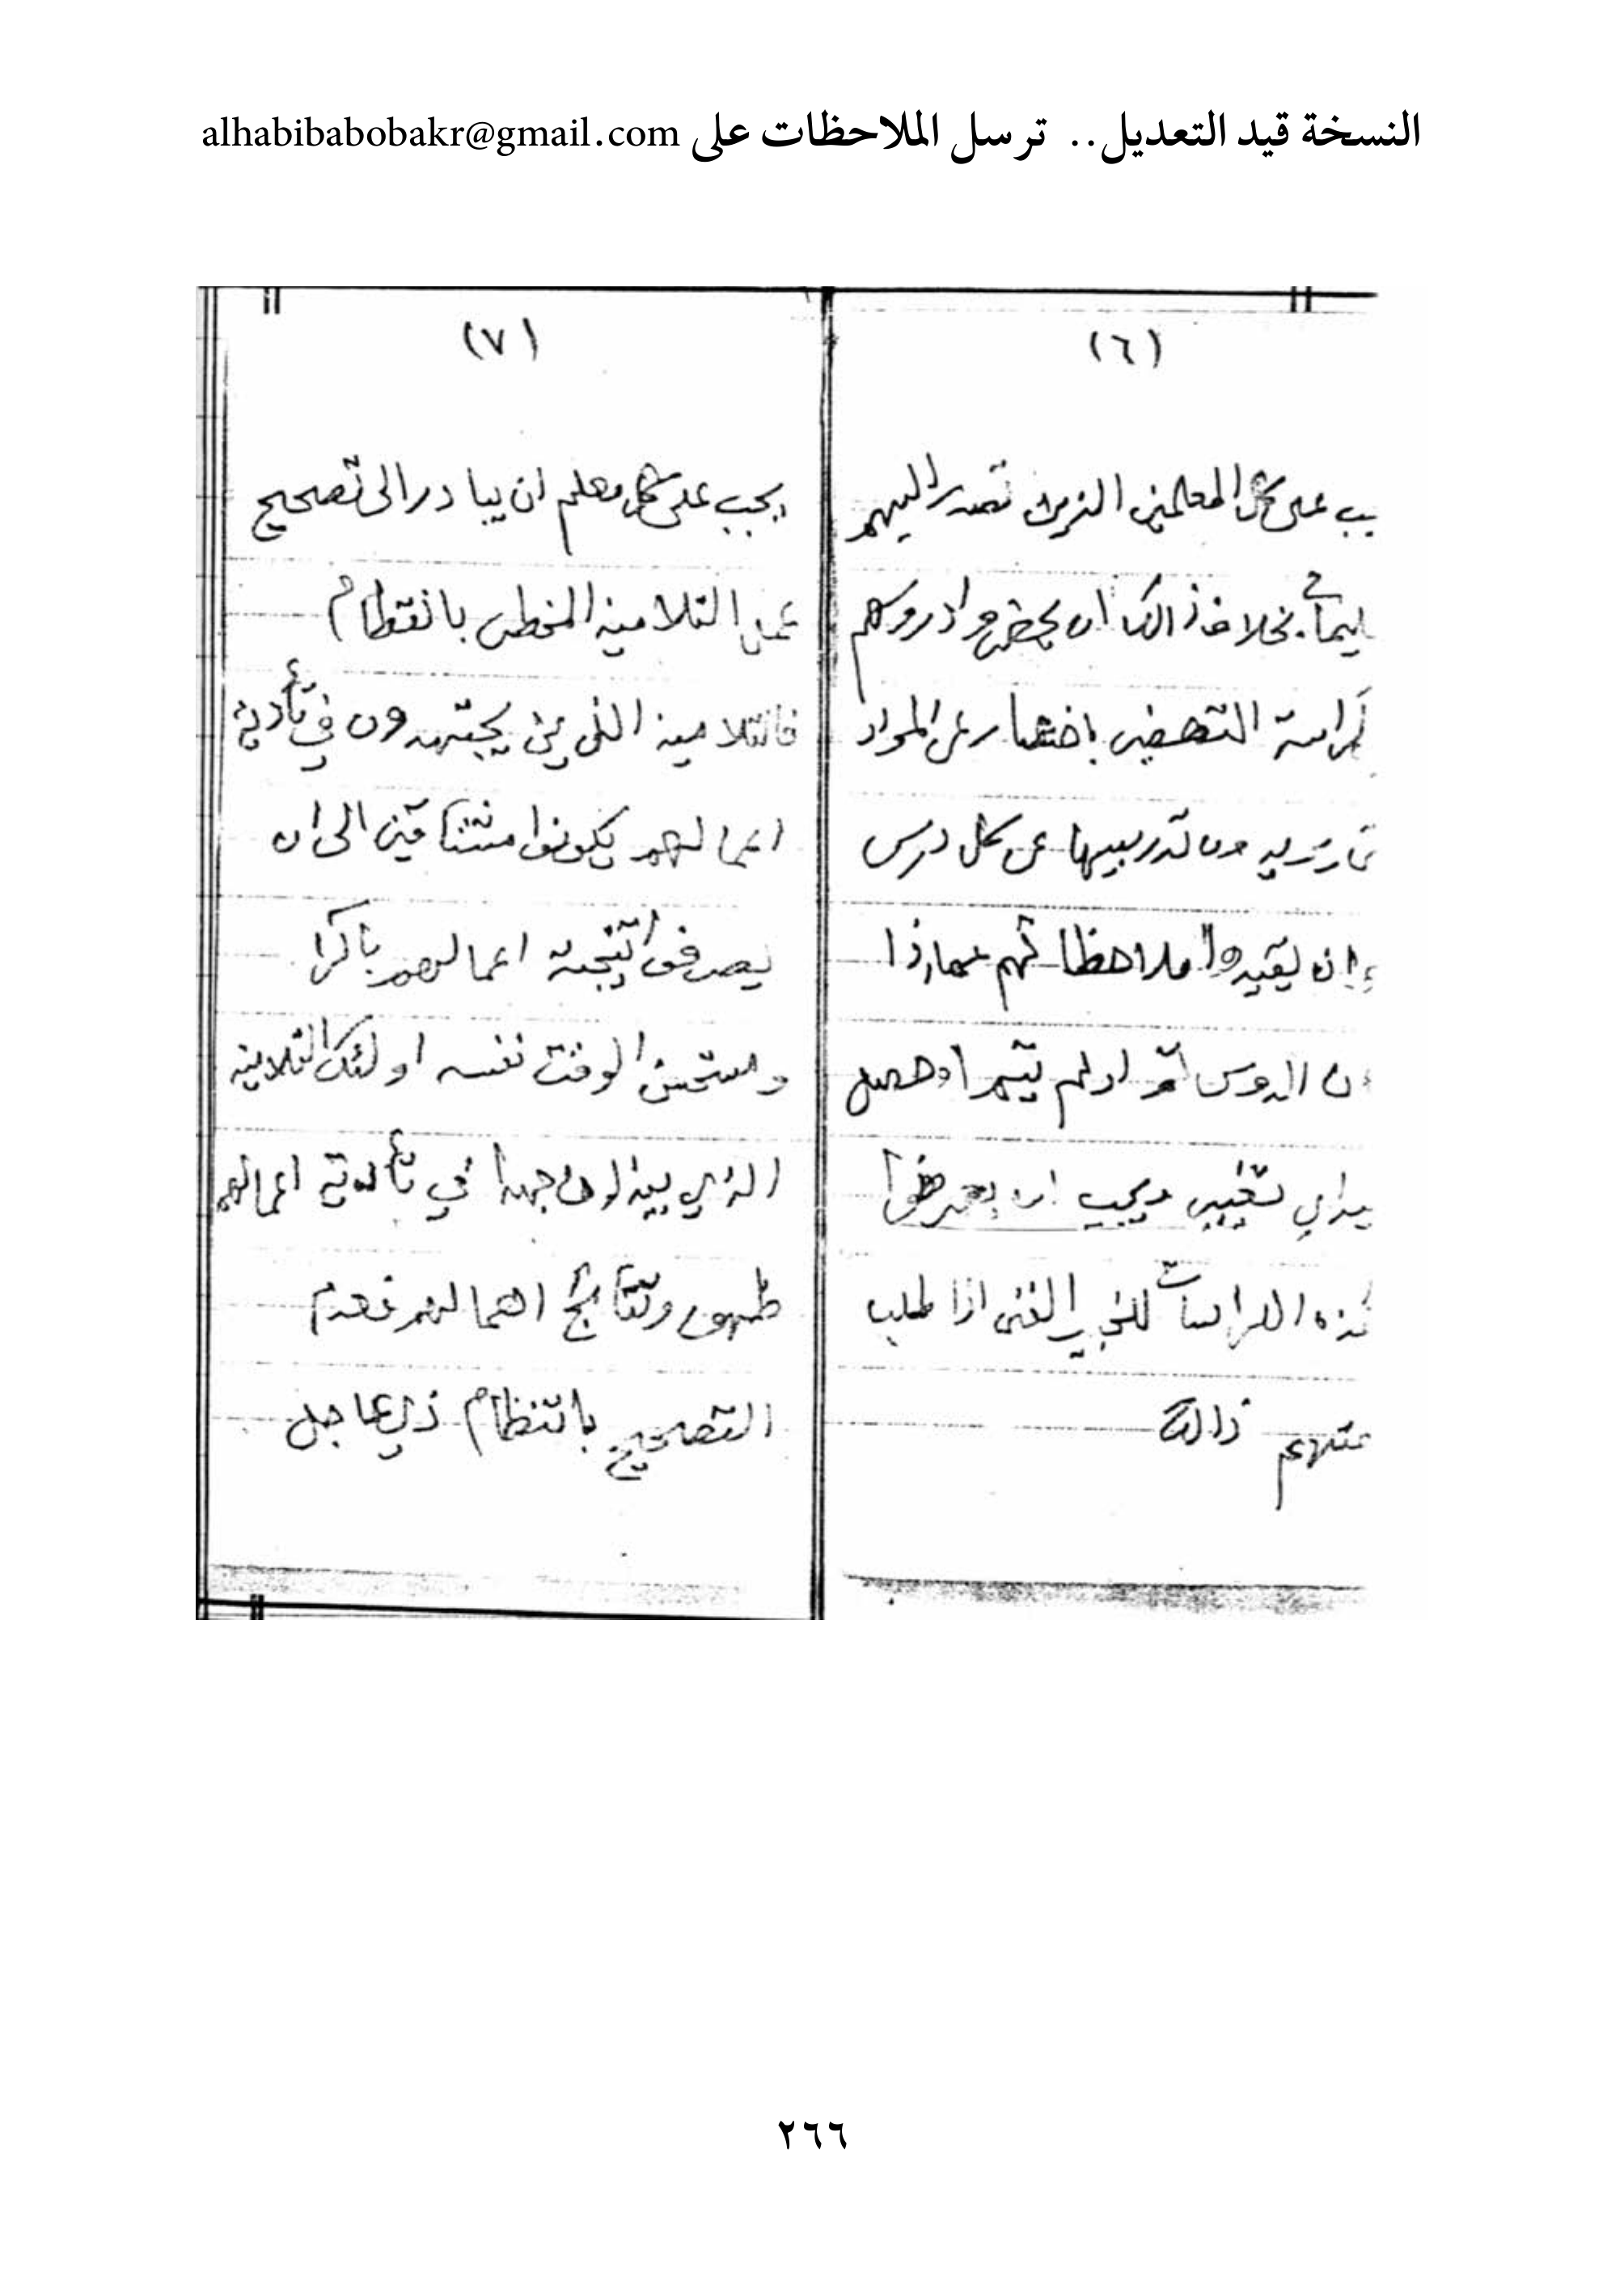 النسخة قيد التعديل.. ترسل الملاحظات على alhabibabobakr@gmail.com
(٦)
يب على كل المعلمين الذين تصدر اليهم
بخلاف ذالك ان يحضروا دروسهم
كراسة التحضير باختصار عن المواد
تدريبها عن كل درس
وان يقيدوا ملاحظاتهم عما اذا
ن الدروس اتم او لم يتم او حصل
اي تغيير ويجب ان يعرضوا
هذه الدراسات للخبير الفني اذا طلب
منهم ذالك
(٧)
يجب على كل معلم ان يبادر الى تصحيح
عمل التلاميذ الخطى بانتظام
فالتلاميذ الذين يجتهدون في تأدية
اعمالهم يكونوا مشتاقين الى ان
يعرفوا نتيجة اعمالهم باكرا
الوقت نفسه اولئك التلاميذ
الذي يبذلون جهدا في تأدية اعمالهم
ونتائج اهمالهم فعدم
التصحيح بانتظام
٢٦٦